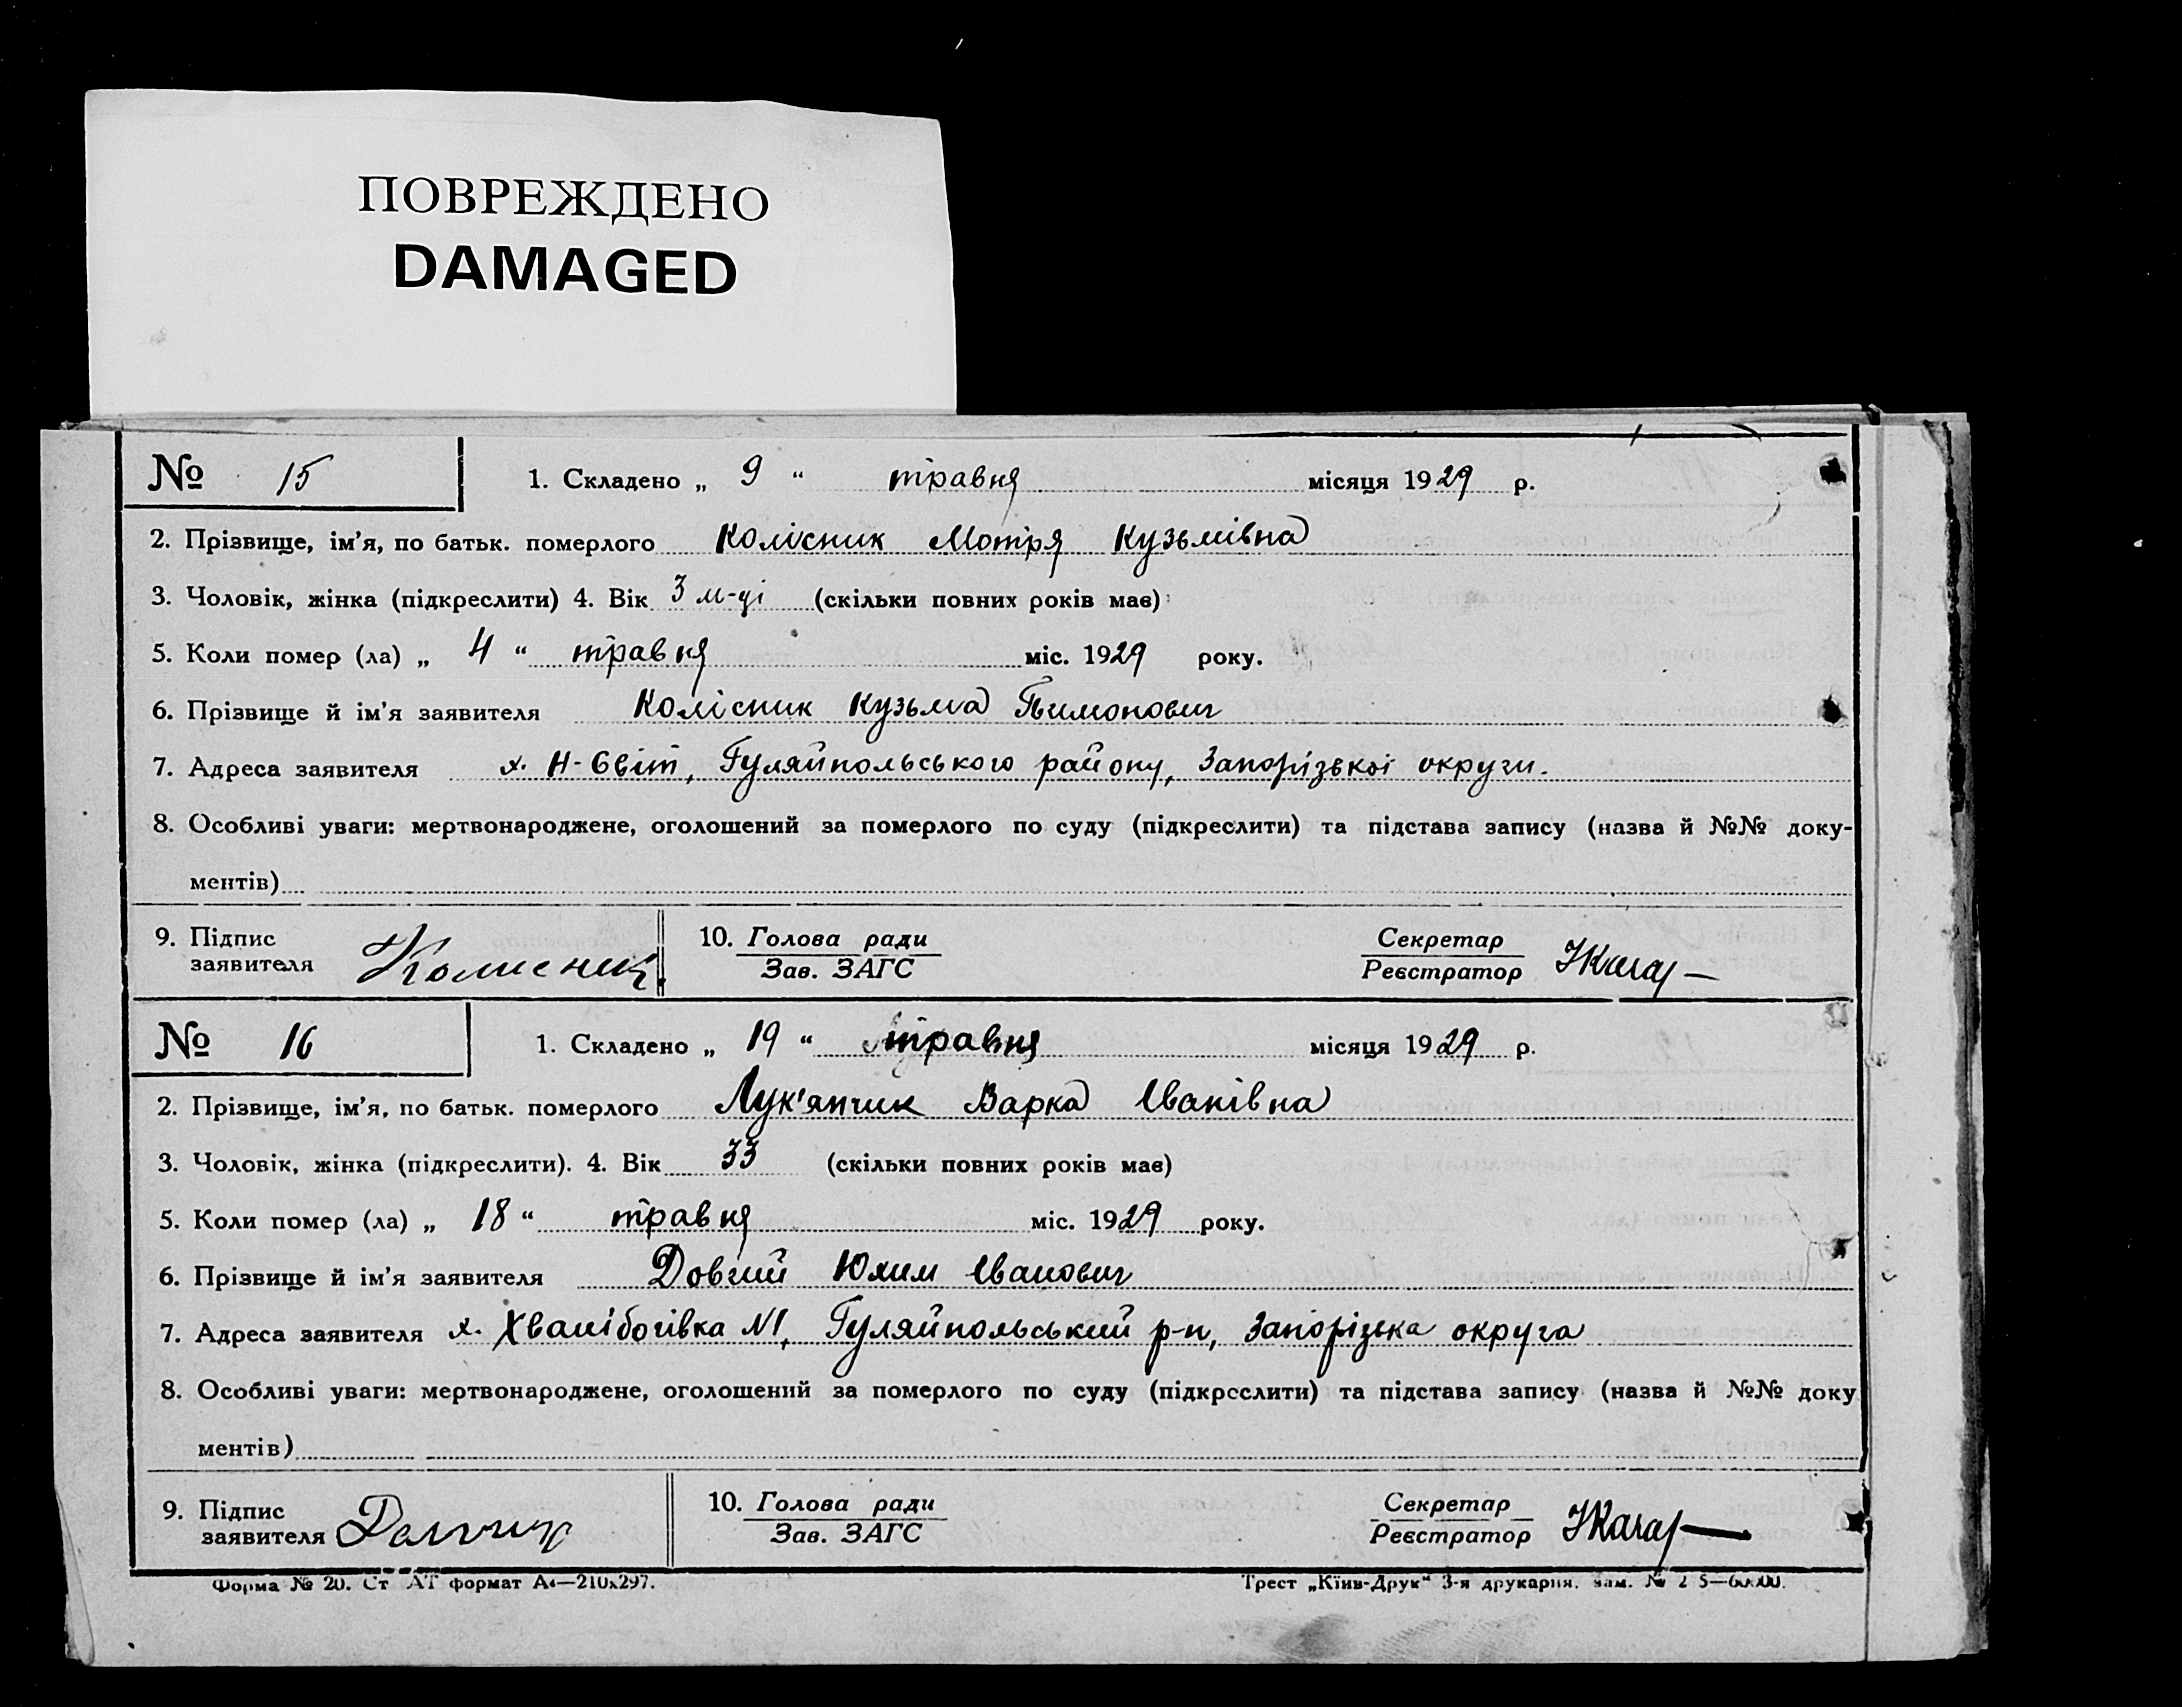 ПОВРЕЖДЕНО
DAMAGED
№ 15 1. Складено „ 9 “ травня місяця 1929 р.
2. Прізвище, ім’я, по батьк. померлого Колісник Мотря Кузьмівна
3. Чоловік, жінка (підкреслити) 4. Вік 3 м-ці (скільки повних років має)
5. Коли помер (ла) „ 4 “ травня міс. 1929 року.
6. Прізвище й ім’я заявителя Колісник Кузьма Пимонович
7. Адреса заявителя х. Н-Світ, Гуляйпольського району, Запорізької округи.
8. Особливі уваги: мертвонароджене, оголошений за померлого по суду (підкреслити) та підстава запису (назва й №№ доку-
ментів)
9. Підпис заявителя Колисник 10. Голова ради Секретар
Зав. ЗАГС Реєстратор
№ 16 1. Складено „ 19 “ травня місяця 1929 р.
2. Прізвище, ім’я, по батьк. померлого Лук'янчик Варка Іванівна
3. Чоловік, жінка (підкреслити). 4. Вік 33 (скільки повних років має)
5. Коли помер (ла) „ 18 “ травня міс. 1929 року.
6. Прізвище й ім’я заявителя Довгий Юхим Іванович
7. Адреса заявителя х. Хванібогівка №1, Гуляйпольський р-н, Запорізька округа
8. Особливі уваги: мертвонароджене, оголошений за померлого по суду (підкреслити) та підстава запису (назва й №№ доку
ментів)
9. Підпис заявителя 10. Голова ради Секретар
Зав. ЗАГС Реєстратор
Форма № 20. Ст АТ формат А4—210х297. Трест „Київ-Друк“ 3-я друкарня. Зам. №